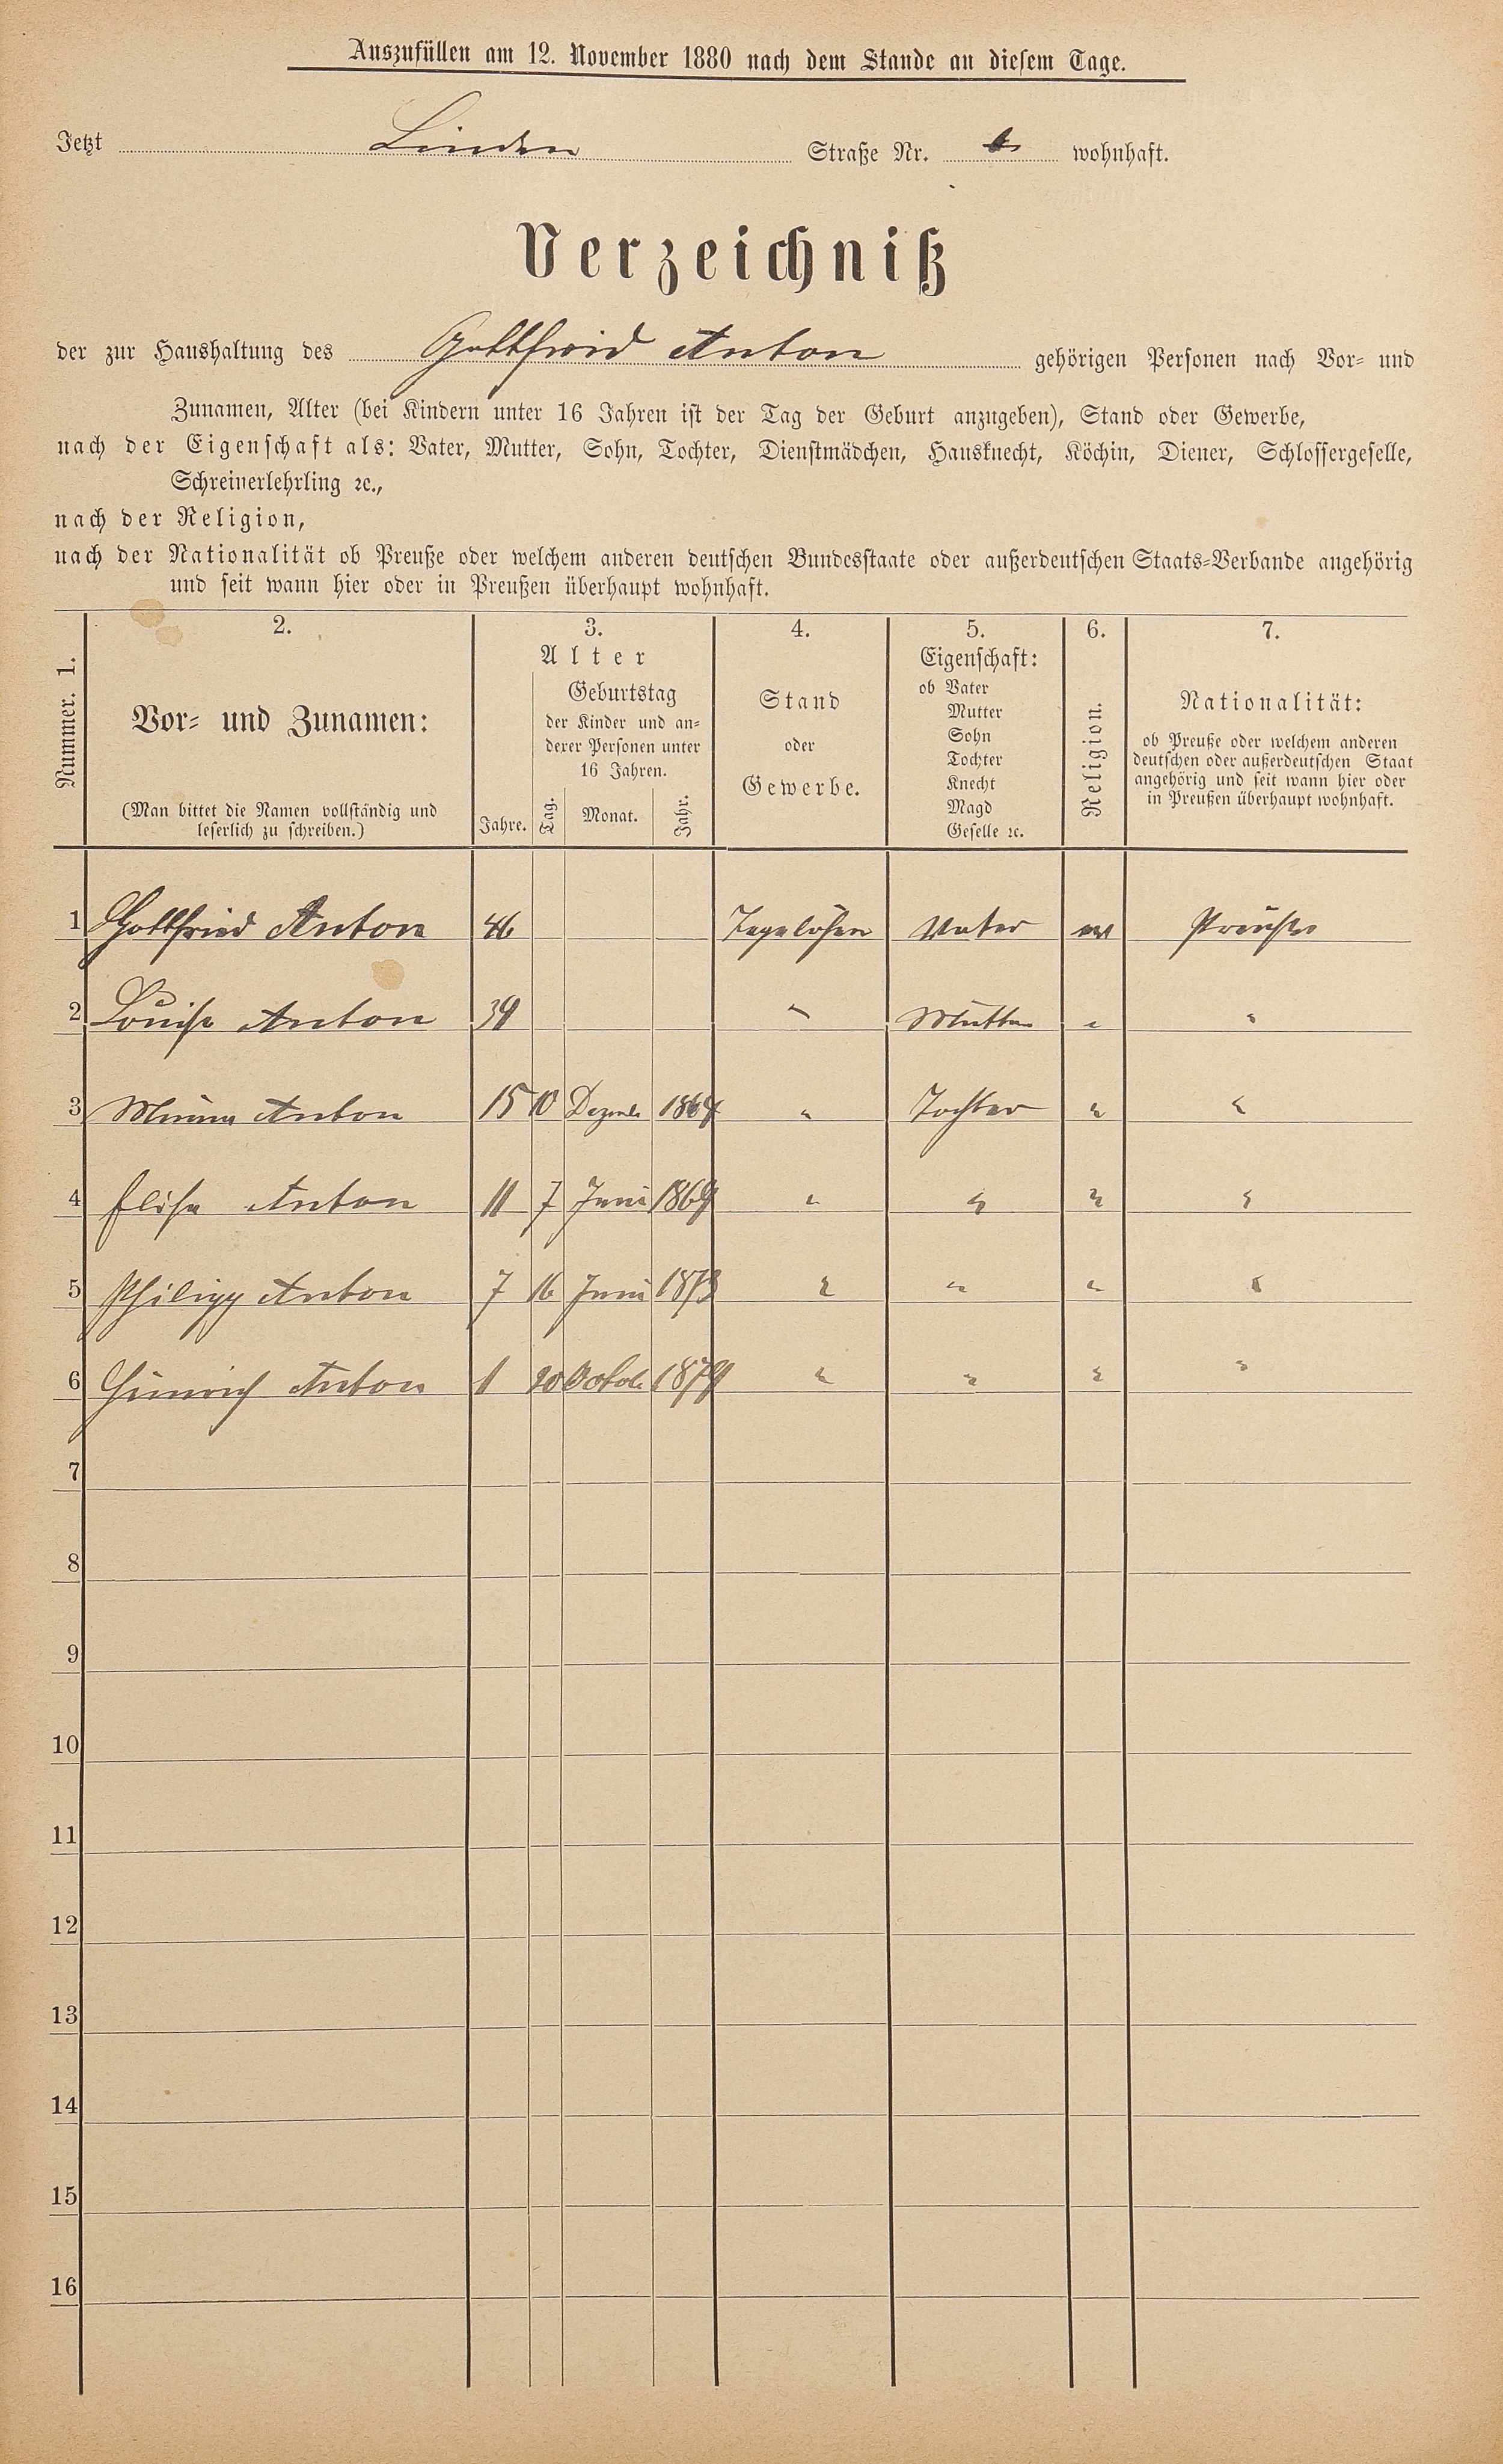 Auszufüllen am 12. November 1880 nach dem Stande an diesem Tage.
Jetzt Linden Straße Nr. 6 wohnhaft.
Verzeichniß
der zur Haushaltung des Gottfried Anton gehörigen Personen nach Vor- und
Zunamen, Alter (bei Kindern unter 16 Jahren ist der Tag der Geburt anzugeben), Stand oder Gewerbe,
nach der Eigenschaft als: Vater, Mutter, Sohn, Tochter, Dienstmädchen, Hausknecht, Köchin, Diener, Schlossergeselle,
Schreinerlehrling ꝛc.,
nach der Religion,
nach der Nationalität ob Preuße oder welchem anderen deutschen Bundesstaate oder außerdeutschen Staats-Verbande angehörig
und seit wann hier oder in Preußen überhaupt wohnhaft.
Nummer. 1.
2.
Vor- und Zunamen:
(Man bittet die Namen vollständig und
leserlich zu schreiben.)
3.
Alter
Jahre.
Geburtstag
der Kinder und an-
derer Personen unter
16 Jahren.
Tag. Monat. Jahr.
4.
Stand
oder
Gewerbe.
5.
Eigenschaft:
ob Vater
Mutter
Sohn
Tochter
Knecht
Magd
Geselle ꝛc.
6.
Religion.
7.
Nationalität:
ob Preuße oder welchem anderen
deutschen oder außerdeutschen Staat
angehörig und seit wann hier oder
in Preußen überhaupt wohnhaft.
1 Gottfried Anton 46 Vater Preuße
2 Louise Anton 34 " Mutter " "
3 Minna Anton 15 10 Dezemb 1864 " Tochter " "
4 Elise Anton 11 7 Juni 1869 " " " "
5 Philipp Anton 7 16 Juni 1873 " " " "
6 Heinrich Anton 1 20 Octob 1879 " " " "
7
8
9
10
11
12
13
14
15
16